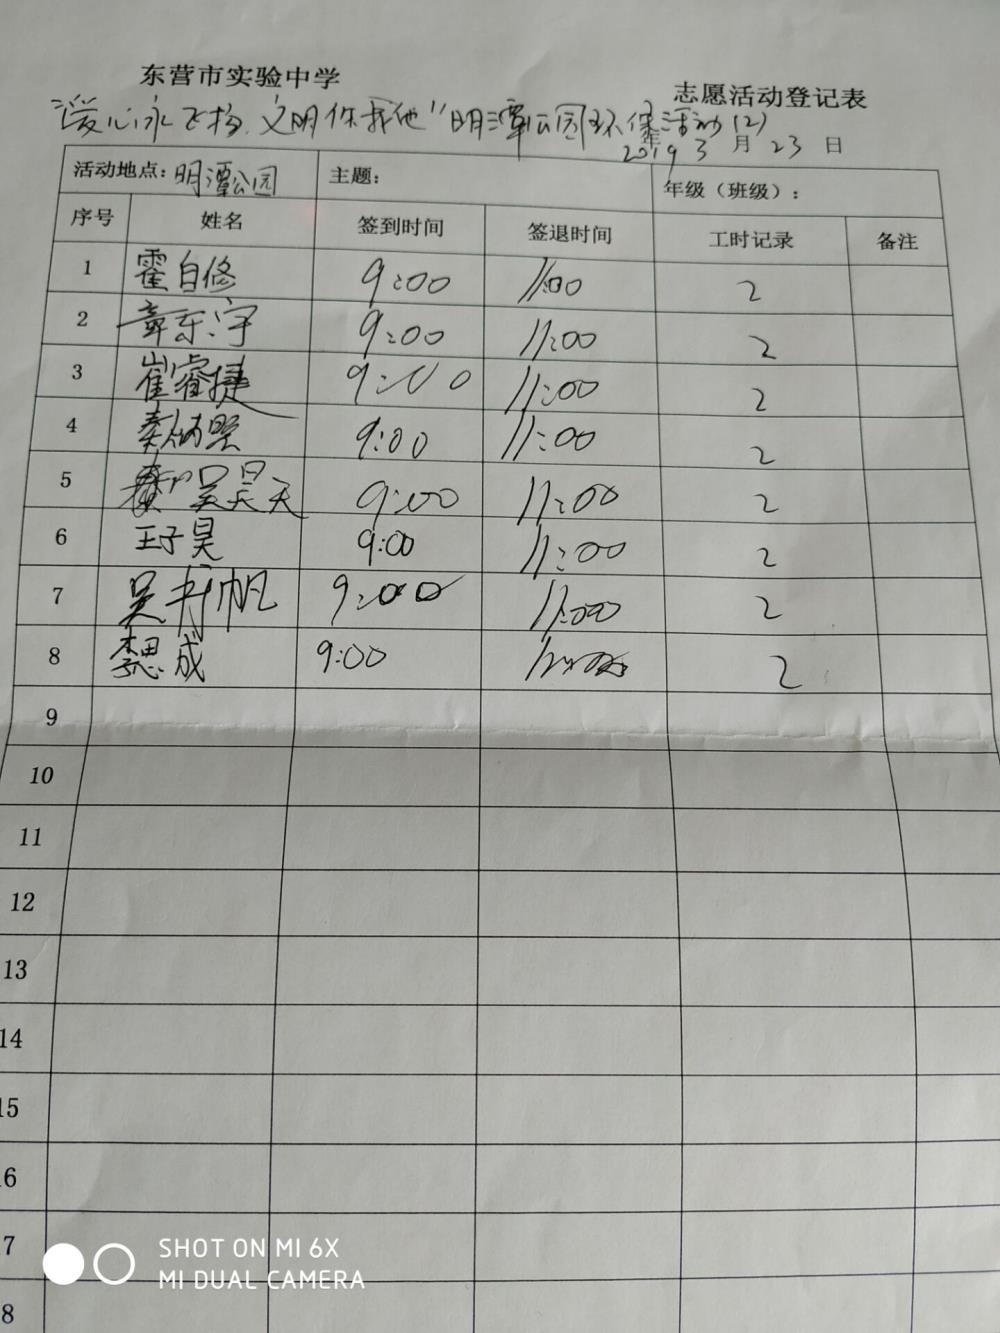 东营市实验中学
志愿活动登记表
"爱心永飞扬,文明你我他"明潭公园环保活动(2)
2019年3月23日
活动地点:明潭公园 主题: 年级(班级):
序号 姓名 签到时间 签退时间 工时记录 备注
1 霍自修 9:00 11:00 2
2 章东宇 9:00 11:00 2
3 崔睿捷 9:00 11:00 2
4 秦炳坚 9:00 11:00 2
5 吴昊天 9:00 11:00 2
6 王子昊 9:00 11:00 2
7 吴书帆 9:00 11:00 2
8 李思成 9:00 2
9
10
11
12
13
14
15
6
7
8
SHOT ON MI 6X
MI DUAL CAMERA